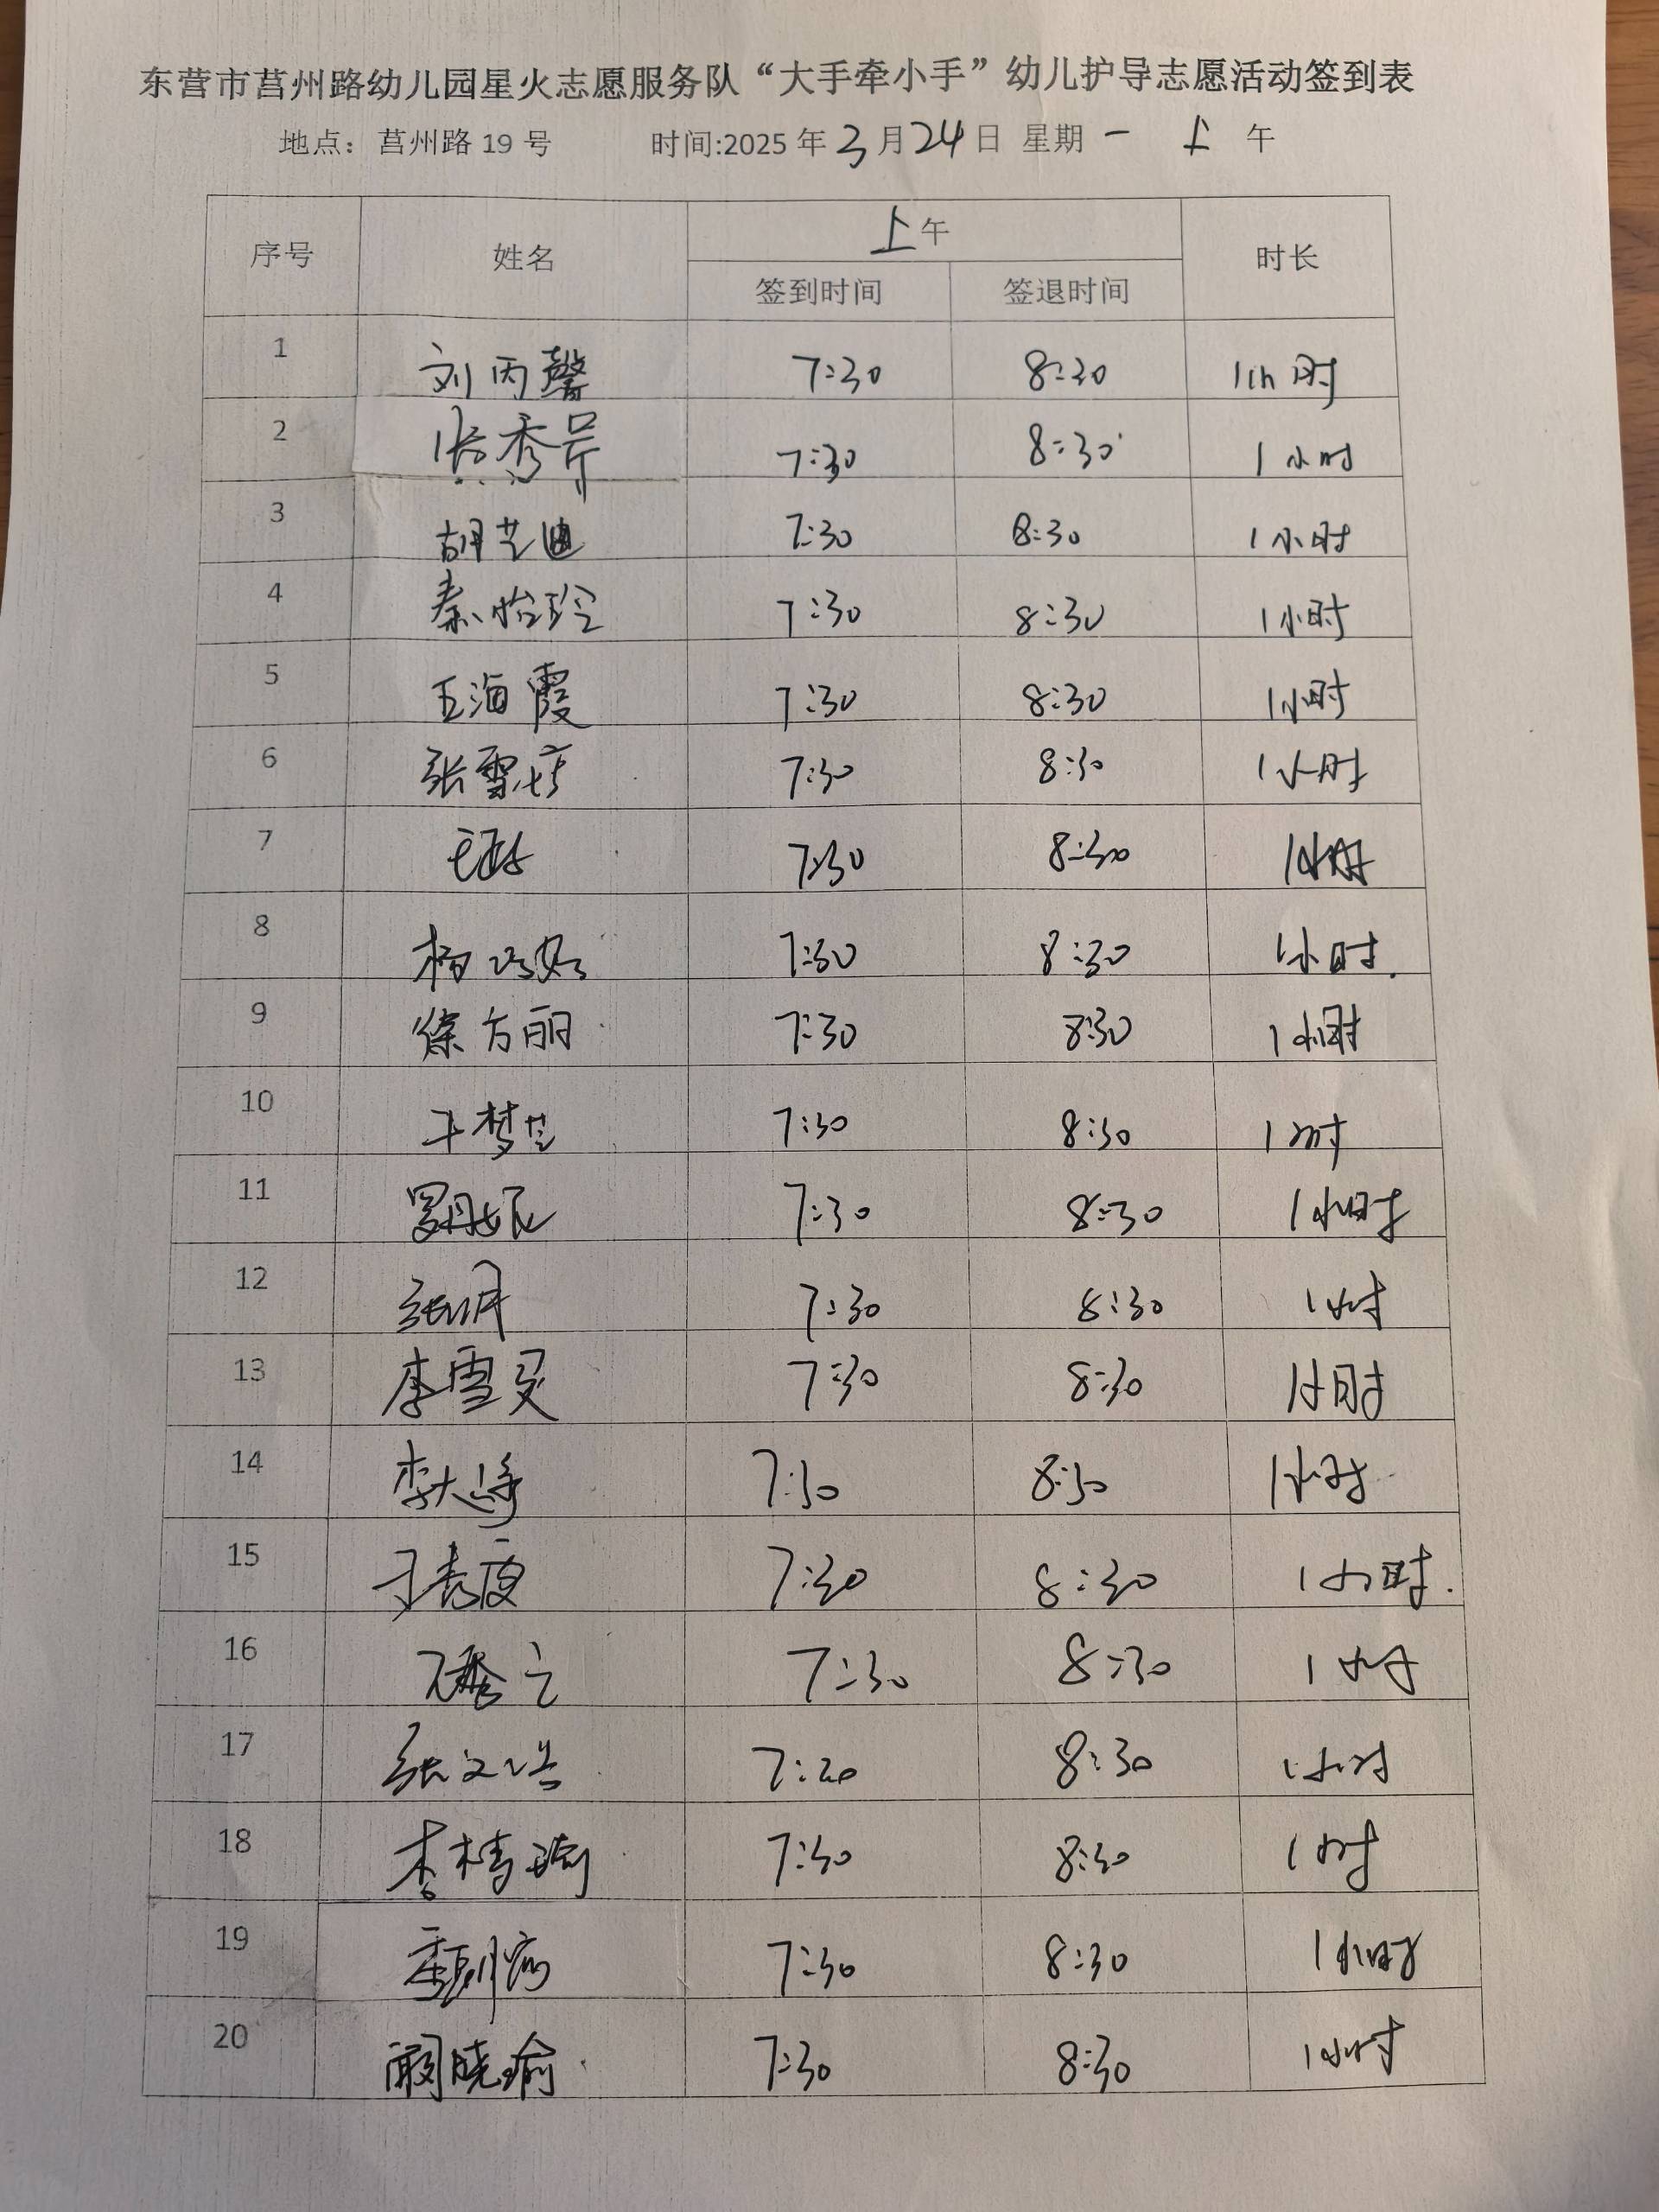 东营市莒州路幼儿园星火志愿服务队“大手牵小手”幼儿护导志愿活动签到表
地点：莒州路 19 号 时间:2025 年 3 月 24 日 星期 一 上 午
序号 姓名 上午 时长
签到时间 签退时间
1 刘丙馨 7:30 8:30 1小时
2 张秀芹 7:30 8:30 1小时
3 胡艺迪 7:30 8:30 1小时
4 秦怡玲 7:30 8:30 1小时
5 王海霞 7:30 8:30 1小时
6 张雪 7:30 8:30 1小时
7 7:30 8:30 1小时
8 杨 7:30 8:30 1小时
9 徐方丽 7:30 8:30 1小时
10 王梦兰 7:30 8:30 1小时
11 7:30 8:30 1小时
12 张明月 7:30 8:30 1小时
13 李雪灵 7:30 8:30 1小时
14 李 7:30 8:30 1小时
15 7:30 8:30 1小时
16 7:30 8:30 1小时
17 张文浩 7:20 8:30 1小时
18 李梼瑜 7:30 8:30 1小时
19 7:30 8:30 1小时
20 阚晓瑜 7:30 8:30 1小时